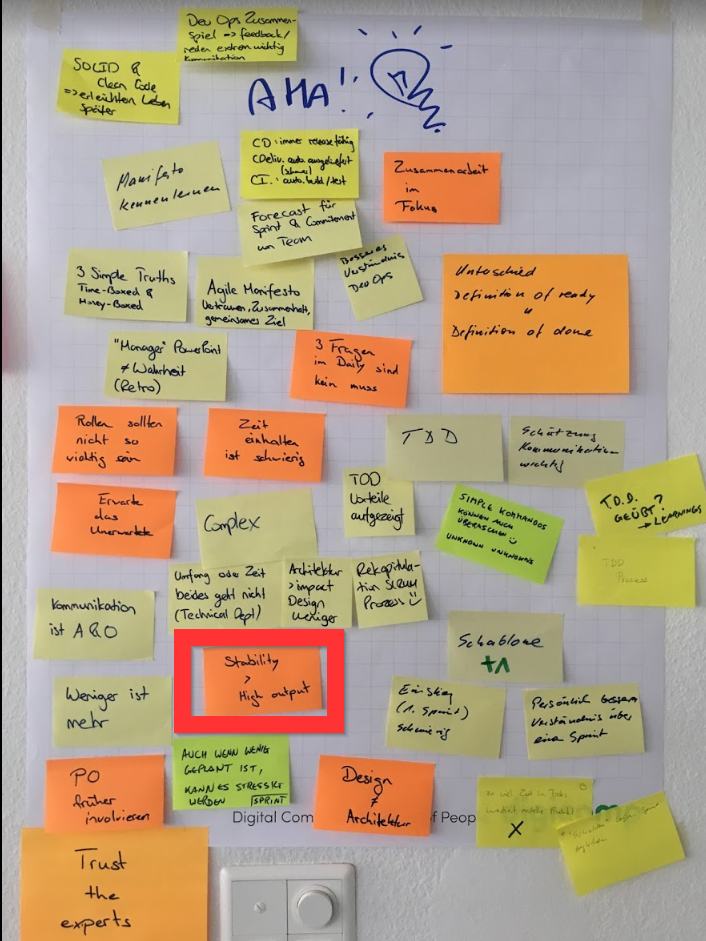 Dev Ops Zusammen-
spiel => feedback/
reden extrem wichtig
Kommunikation
SOLID &
Clean Code
=> erleichtern Leben
später
AHA!
Manifesto
kennenlernen
CD: immer releasefähig
CDeliv. auto. ausgeliefert
CI.: auto. build/test
Zusammenarbeit
im
Fokus
Forecast für
Sprint & Commitment
von Team
Besseres
Verständnis
Dev Ops
3 Simple Truths
Time-Boxed &
Money-Boxed
Agile Manifesto
Vertrauen, Zusammenhalt,
gemeinsames Ziel
Unterschied
Definition of ready
Definition of done
"Manager" PowerPoint
≠ Wahrheit
(Retro)
3 Fragen
im Daily sind
kein muss
Rollen sollten
nicht so
wichtig sein
Zeit
einhalten
ist schwierig
TDD
Schätzung
Kommunikation
wichtig
Erwarte
das
Unerwartete
Complex
TDD
Vorteile
aufgezeigt
SIMPLE KOMMANDOS
KÖNNEN AUCH
ÜBERRASCHEN
UNKNOWN UNKNOWNS
T.D.D.
GEÜBT?
→ LEARNINGS
TDD
Prozess
Kommunikation
ist A & O
Umfang oder Zeit
beides geht nicht
(Technical Dept)
Architektur
> impact
Design
weniger
Rekapitula-
tion SCRUM
Prozess
Stability
>
High output
Schablone
+1
Weniger ist
mehr
Einstieg
(1. Sprint)
schwierig
Persönlich besseres
Verständnis über
einen Sprint
PO
früher
involvieren
AUCH WENN WENIG
GEPLANT IST,
KANN ES STRESSIG
WERDEN SPRINT
Design
≠
Architektur
Digital Com of Peop
X
Trust
the
experts